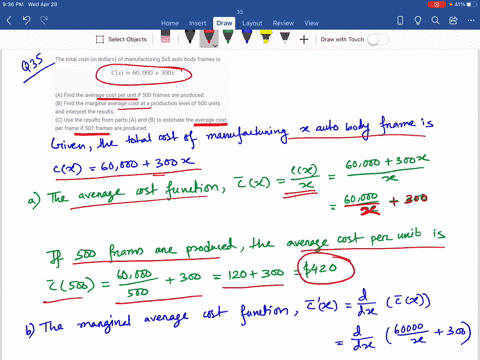 9:36 PM Wed Apr 28
35
41%
Home Insert Draw Layout Review View
Select Objects
Draw with Touch
Q35
The total cost (in dollars) of manufacturing $x$ auto body frames is
C(x) = 60,000 + 300x
(A) Find the average cost per unit if 500 frames are produced.
(B) Find the marginal average cost at a production level of 500 units
and interpret the results.
(C) Use the results from parts (A) and (B) to estimate the average cost
per frame if 501 frames are produced.
Given, the total cost of manufacturing x auto body frame is
C(x) = 60,000 + 300x
a) The average cost function, C̅(x) = C(x)/x = 60,000 + 300x/x
= 60,000/x + 300
If 500 frams are produced, the average cost per unit is
C̅(500) = 60,000/500 + 300 = 120 + 300 = $420
b) The marginal average cost function, C̅'(x) = d/dx (C̅(x))
= d/dx (60000/x + 300)